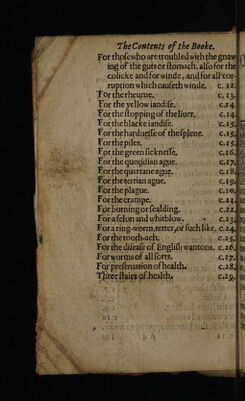 The Contents of the Booke.
For those who are troubled with the gnaw
ing of the guts or stomach, also for the
colicke and for winde, and for all cor-
ruption which causeth winde. c.12.
For the rheume. c.13.
For the yellow iandise. c.14.
For the stopping of the liuer. c.14.
For the blacke iandise. c.15.
For the hardnesse of the splene. c.15.
For the piles. c.15.
For the green sicknesse. c.16.
For the quotidian ague. c.17.
For the quartane ague. c.18.
For the tertian ague. c.19.
For the plague.
For the crampe. c.21.
For burning or scalding. c.22.
For a felon and whitblow. c.23.
For a ring-worm, tetter, or such like. c.24.
For the tooth-ach. c.25.
For the disease of English wantons. c.26.
For worms of all sorts. c.27.
For preseruation of health. c.28.
Three staies of health. c.29.